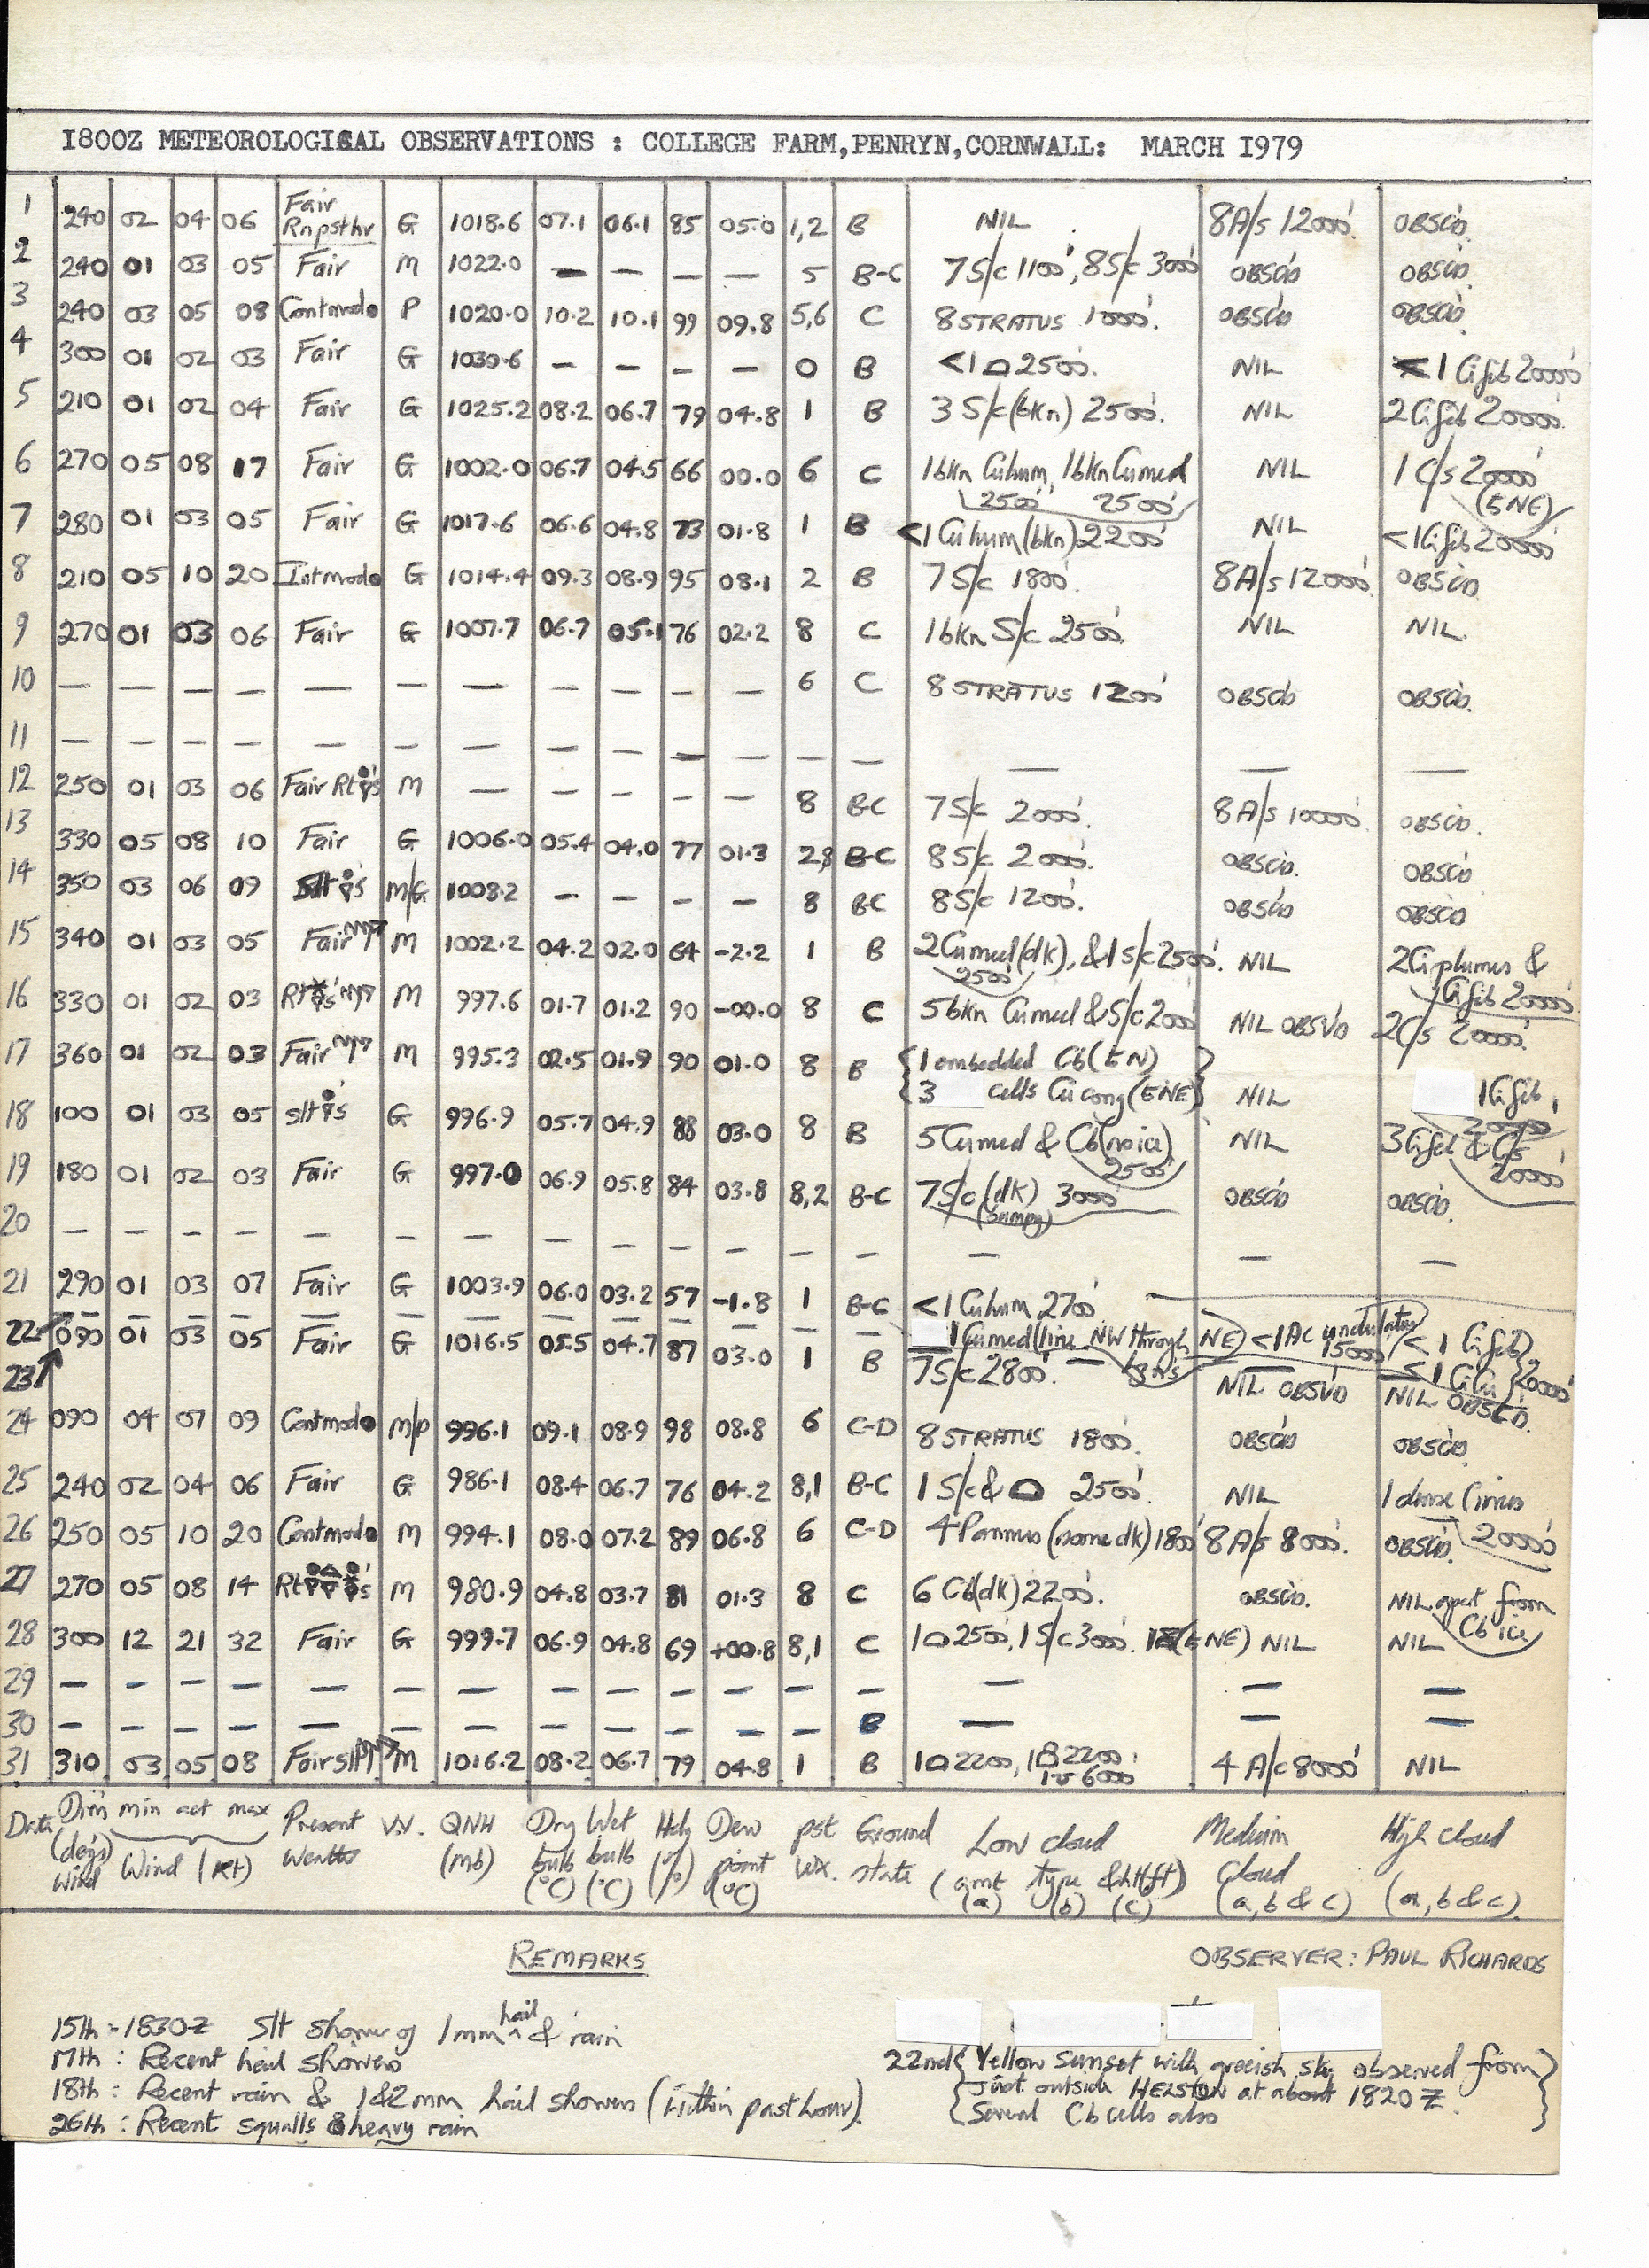 1800Z METEOROLOGICAL OBSERVATIONS : COLLEGE FARM,PENRYN,CORNWALL: MARCH 1979
1 240 02 04 06 Fair Rnpsthr G 1018.6 07.1 06.1 85 05.0 1,2 B NIL 8A/s 12000' OBSC'D
2 240 01 03 05 Fair M 1022.0 — — — — 5 B-C 7S/c 1100', 8S/c 3000' OBSC'D OBSC'D
3 240 03 05 08 Contmod● P 1020.0 10.2 10.1 99 09.8 5,6 C 8 STRATUS 1000'. OBSC'D OBSC'D
4 300 01 02 03 Fair G 1030.6 — — — — 0 B <1 2500'. NIL <1 Cifib 20000'
5 210 01 02 04 Fair G 1025.2 08.2 06.7 79 04.8 1 B 3 S/c(bkn) 2500'. NIL 2Cifib 20000'
6 270 05 08 17 Fair G 1002.0 06.7 04.5 66 00.0 6 C 1bkn Cuhum, 1bkn Cumed 2500' 2500' NIL 1 C/s 20000' (ENE)
7 280 01 03 05 Fair G 1017.6 06.6 04.8 73 01.8 1 B <1 Cuhum(bkn)2200' NIL <1Cifib 20000'
8 210 05 10 20 Intmod● G 1014.4 09.3 08.9 95 08.1 2 B 7 S/c 1800'. 8A/s 12000' OBSC'D
9 270 01 03 06 Fair G 1007.7 06.7 05.1 76 02.2 8 C 1bkn S/c 2500' NIL NIL.
10 — — — — — — — — — — — 6 C 8 STRATUS 1200' OBSC'D OBSC'D.
11 — — — — — — — — — — — — — — — —
12 250 01 03 06 Fair Rt M — — — — — 8 B-C 7S/c 2000'. 8A/s 10000' OBSC'D.
13 330 05 08 10 Fair G 1006.0 05.4 04.0 77 01.3 2,8 B-C 8 S/c 2000'. OBSC'D. OBSC'D
14 350 03 06 09 Slt M/G 1008.2 — — — — 8 BC 8S/c 1200'. OBSC'D OBSC'D
15 340 01 03 05 Fair M 1002.2 04.2 02.0 64 -2.2 1 B 2Cumed(dk), &1 S/c2500'. 2500' NIL 2Ci plumes & Cifib 20000'
16 330 01 02 03 Rt M 997.6 01.7 01.2 90 -00.0 8 C 5 bkn Cumed & S/c2000' NIL OBSV'D 2C/s 20000'.
17 360 01 02 03 Fair M 995.3 02.5 01.9 90 01.0 8 B {1 embedded Cb(EN) 3 cells Cucong(ENE)} NIL 1Cifib 20000'
18 100 01 03 05 slt G 996.9 05.7 04.9 88 03.0 8 B 5Cumed & Cb(no ice) 2500' NIL 3Cifib & C/s 20000'
19 180 01 02 03 Fair G 997.0 06.9 05.8 84 03.8 8,2 B-C 7S/c (dk) 3000' OBSC'D OBSC'D.
20 — — — — — — — — — — — — — — — —
21 290 01 03 07 Fair G 1003.9 06.0 03.2 57 -1.8 1 B-C <1 Cuhum 2700'
22 — — — — — — — — — — — — — 1Cumed(line NW through NE) <1Ac undulatus 15000' <1 Cifib <1 CiCu } 20000'
23 090 01 03 05 Fair G 1016.5 05.5 04.7 87 03.0 1 B 7S/c2800'. NIL OBSV'D NIL OBSC'D.
24 090 04 07 09 Contmod● M/P 996.1 09.1 08.9 98 08.8 6 C-D 8 STRATUS 1800'. OBSC'D OBSC'D
25 240 02 04 06 Fair G 986.1 08.4 06.7 76 04.2 8,1 B-C 1 S/c& 2500'. NIL 1 dense Cirrus 20000'
26 250 05 10 20 Contmod● M 994.1 08.0 07.2 89 06.8 6 C-D 4 Pannus (some dk) 1800' 8 A/s 8000'. OBSC'D.
27 270 05 08 14 Rt M 980.9 04.8 03.7 81 01.3 8 C 6 Cb(dk) 2200'. OBSC'D. NIL apart from Cb ice
28 300 12 21 32 Fair G 999.7 06.9 04.8 69 +00.8 8,1 C 1 2500', 1 S/c 3000'. (ENE) NIL NIL
29 — — — — — — — — — — — — — — — —
30 — — — — — — — — — — — — B — — —
31 310 03 05 08 Fair slt M 1016.2 08.2 06.7 79 04.8 1 B 1 2200, 1 2200' 6000' 4 A/c 8000' NIL
Date Dir'n (deg's) wind min act max Wind (kt) Present Weather VV. QNH (mb) Dry bulb (°C) Wet bulb (°C) Hdy (%) Dew point (°C) pst wx. Ground state Low cloud (amt type &ht(ft)) (a) (b) (c) Medium cloud (a, b & c) High cloud (a, b & c).
REMARKS
OBSERVER: PAUL RICHARDS
15th:-1830Z Slt shower of 1mm hail & rain
17th: Recent hail showers
18th: Recent rain & 1&2mm hail showers (within past hour).
26th: Recent squalls & heavy rain
22nd{Yellow sunset with greeish sky observed from
just outside HELSTON at about 1820 Z.
Several Cb cells also}